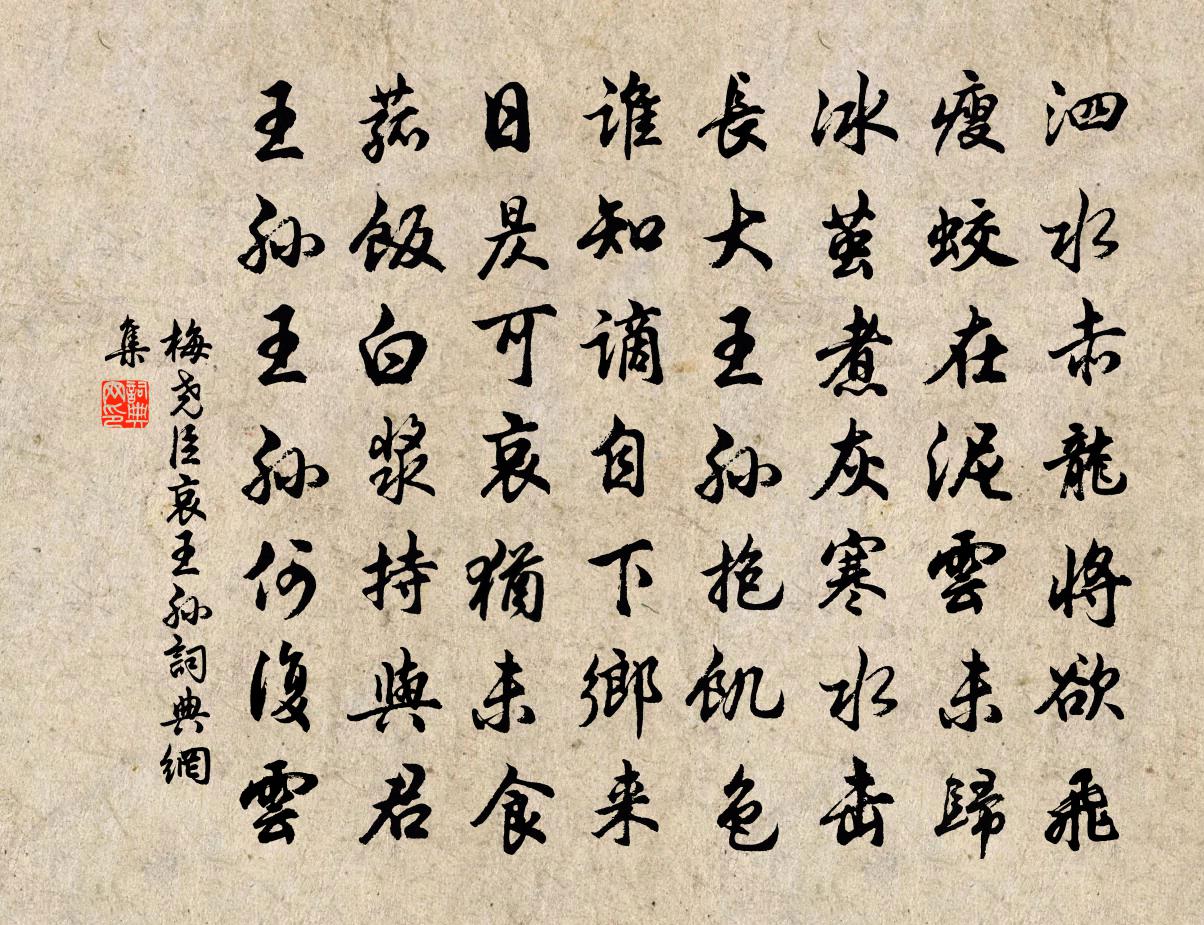 泗水赤龍將欲飛
瘦蛟在泥雲未歸
冰茧煮灰寒水击
長大王孫抱飢色
誰知謫自下鄉来
日昃可哀猶未食
菰飯白漿持與君
王孫王孫何復雲
梅尧臣哀王孫詞典網
集
詞典网印